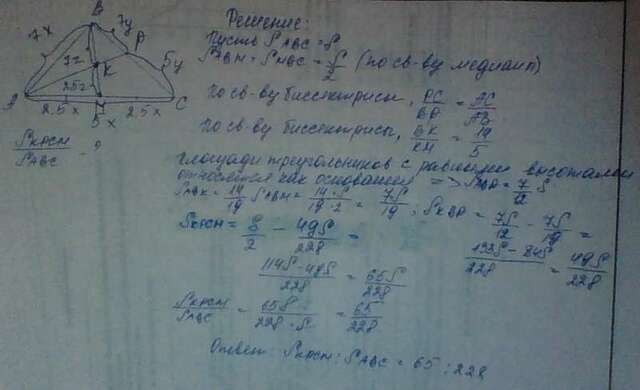 B
7x
7y
P
7z
K
5y
2,5z
A
2,5x
M
2,5x
C
5x
S_KPCM / S_ABC - ?
Решение:
Пусть S_ABC = S
S_ABM = S_MBC = S/2 (по св-ву медиан)
По св-ву биссектрисы, PC/BP = AC/AB
По св-ву биссектрисы, BK/KM = 14/5
Площади треугольников с равными высотами
относятся как основания => S_ABP = 7/12 S
S_ABK = 14/19 S_ABM = 14·S/19·2 = 7S/19 ; S_KBP = 7S/12 - 7S/19 =
133S - 84S/228 = 49S/228
S_KPCM = S/2 - 49S/228 =
114S - 49S/228 = 65S/228
S_KPCM/S_ABC = 65S/228·S = 65/228
Ответ: S_KPCM : S_ABC = 65 : 228